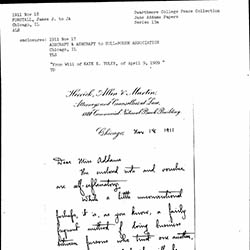 1911 Nov 18
FORSTALL, James J. to JA
Chicago, IL
ALS
Swarthmore College Peace Collection
Jane Addams Papers
Series 13a
enclosures: 1911 Nov 17
ASHCRAFT & ASHCRAFT to HULL-HOUSE ASSOCIATION
Chicago, IL
TLS
"Your Will of KATE E. TULEY, of April 9, 1909"
TD
Herrick, Allen & Martin,
Attorneys and Counsellors at Law,
Commercial National Bank Building.
Chicago, Nov 18 1911
Dear Miss Addams
The enclosed note and voucher
are self-explanatory.
While a little unconventional
perhaps, it is, as you know, a fairly
frequent method of doing business
between persons who trust one another.